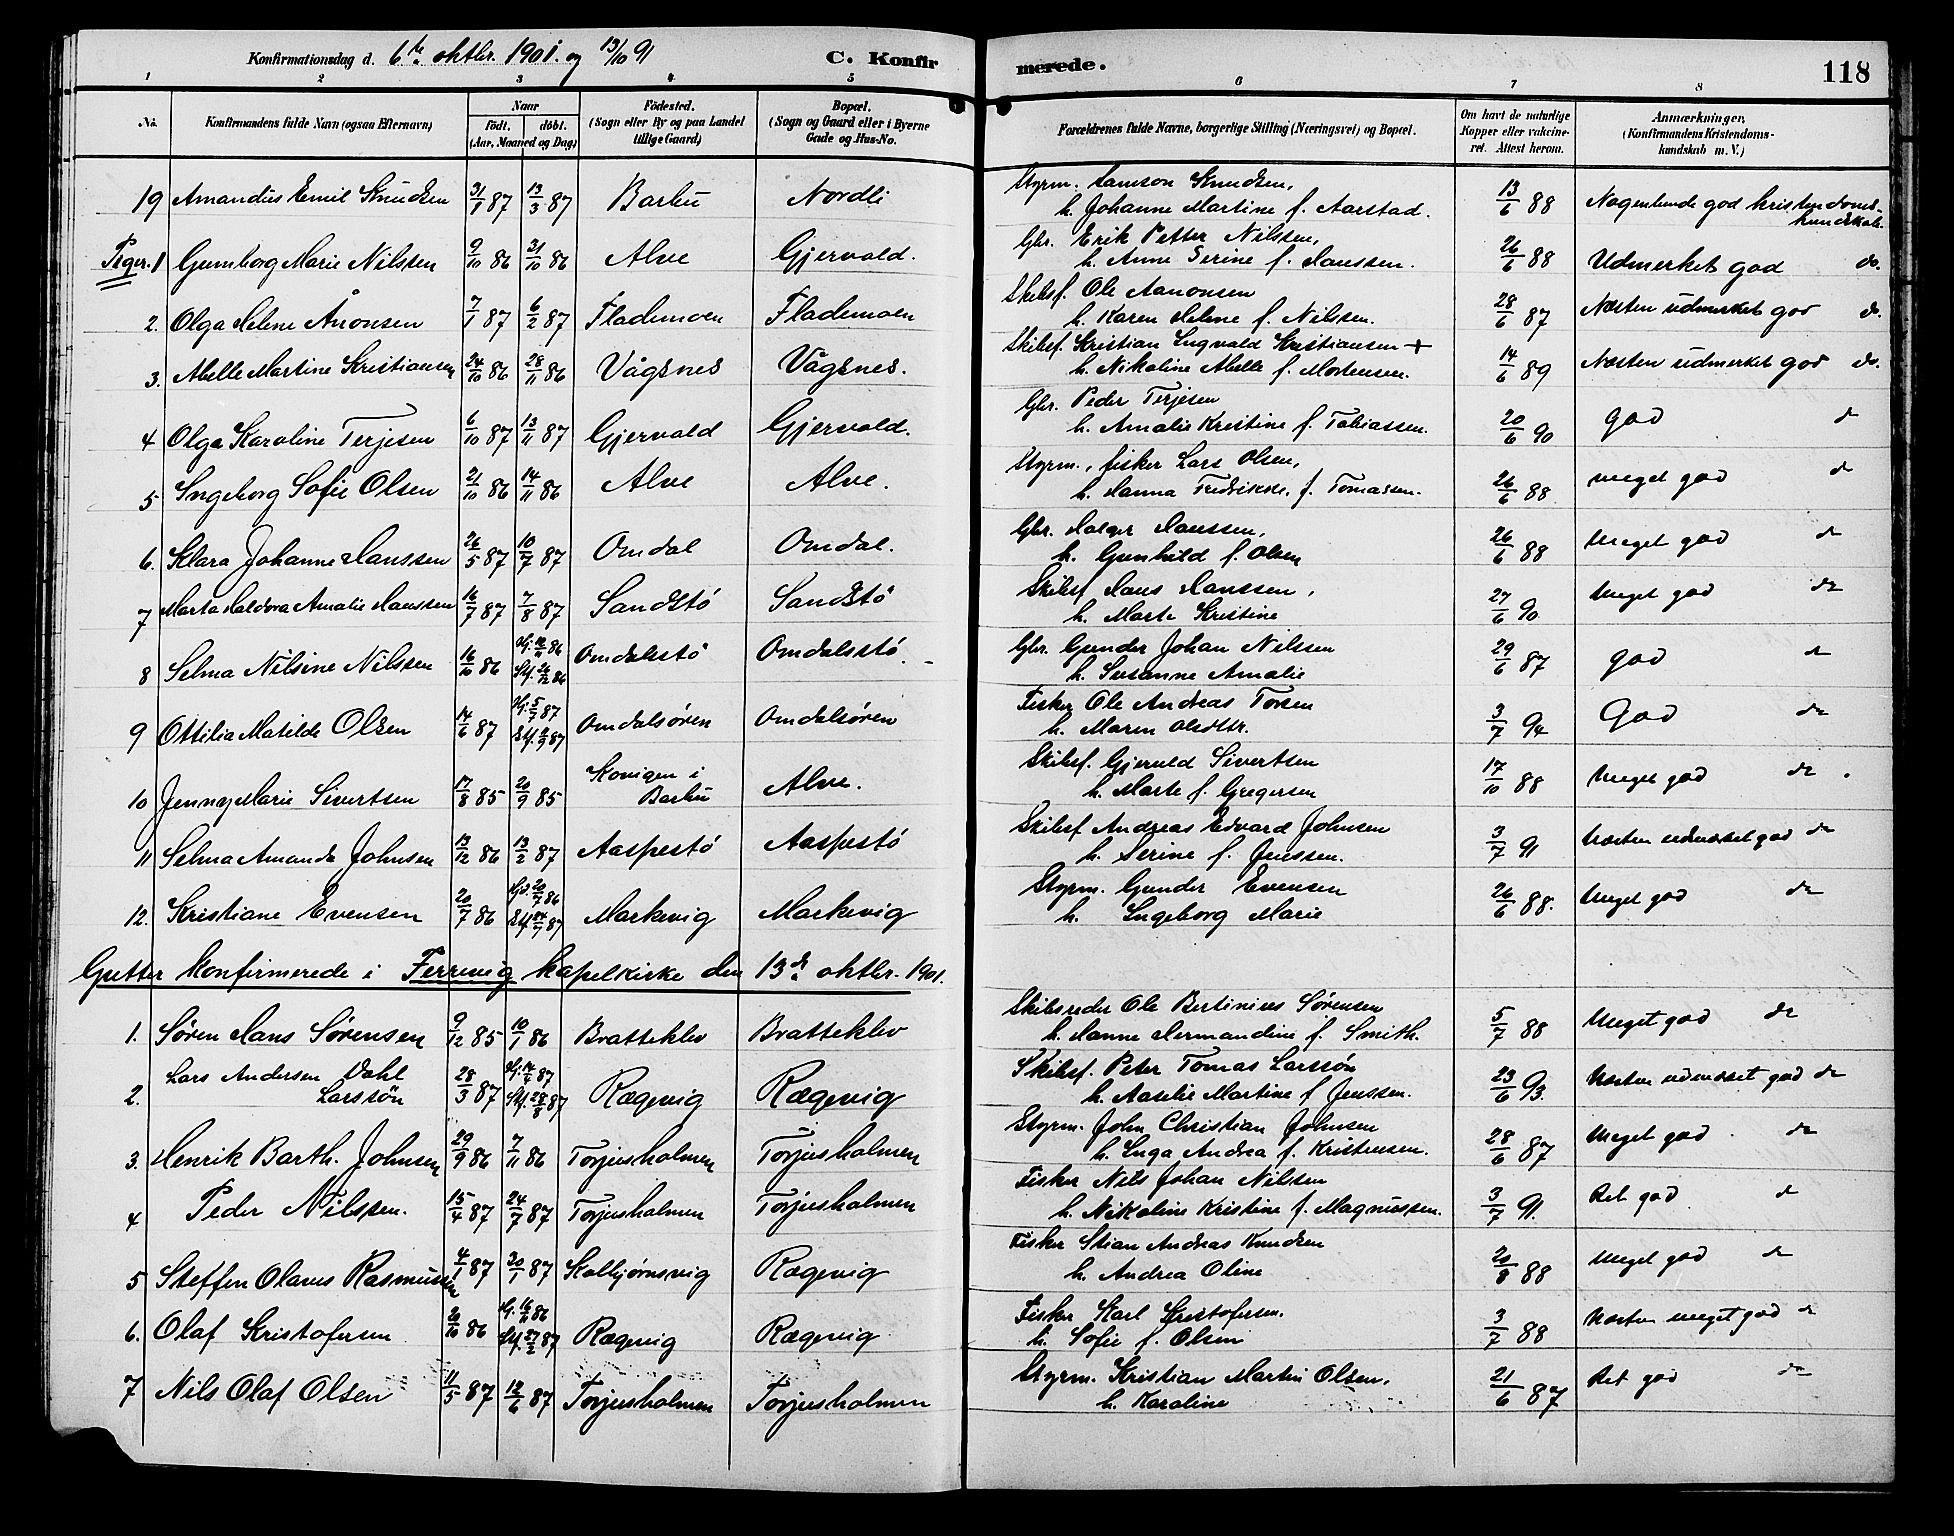 Konfirmationsdag d. 6te oktbr. 1901. og 13/10 91
C. Konfirmerede.
118
1 2 3 4 5 6 7 8
No. Konfirmandens fulde Navn (ogsaa Efternavn) Naar født. døbt. (Aar, Maaned og Dag) Fødested. (Sogn eller By og paa Landet tillige Gaard) Bopæl. (Sogn og Gaard eller i Byerne Gade og Hus-No. Forældrenes fulde Navne, borgerlige Stilling (Næringsvei) og Bopæl. Om havt de naturlige Kopper eller vakcineret. Attest herom. Anmærkninger, (Konfirmandens Kristendomskundskab m. V.)
19 Amandus Emil Knudsen 31/1 87 13/3 87 Barbu Nordli Styrm. Samson Knudsen, h. Johanne Martine f. Aarstad. 13/6 88 Nogenlunde god kristendomskundskab.
Piger. 1 Gumborg Marie Nilssen 9/10 86 31/10 86 Alve Gjervold. Gbr. Erik Petter Nilssen, h. Anne Serine f. Hanssen. 26/6 88 Udmerket god do.
2. Olga Helene Ånonsen 7/1 87 6/2 87 Flademoen Flademoen Skibsf. Ole Aanonsen h. Karen Helene f. Nilsen. 28/6 87 Næsten udmerket god do.
3. Abelle Martine Kristiansen 24/10 86 28/11 86 Vågsnes Vågsnes. Skibsf. Kristian Ingvald Kristiansen + h. Nikoline Abelle f. Mortensen. 14/6 89 Næsten udmerket god do.
4 Olga Karoline Terjesen 6/10 87 13/11 87 Gjervold Gjervold. Gbr. Peder Terjesen h. Amalie Kristine f. Tobiassen. 20/6 90 god d
5 Ingeborg Sofie Olsen 21/10 86 14/11 86 Alve Alve. Styrm., fisker Lars Olsen, h. Hanna Fredrikke, f. Tomassen. 26/6 88 meget god d
6. Klara Johanne Hanssen 26/5 87 10/7 87 Omdal Omdal. Gbr. Holger Hanssen, h. Gunhild f. Olsen 26/6 88 Meget god d
7 Marta Haldora Amalie Hanssen 16/7 87 7/8 87 Sandstö Sandstö Skibsf Hans Hanssen, h. Marte Kristine 27/6 90 Meget god do
8 Selma Nilsine Nilssen 16/10 86 Omdalsstö Omdalsstö. Gbr. Gunder Johan Nilssen h. Susanne Amalie 29/6 87 god d
9 Ottilia Matilde Olsen 14/6 87 Hj. 5/7 87 Stf. 2/9 87 Omdalsøren Omdalsøren Fisker Ole Andreas Torsen h. Maren Olsdtr. 3/7 94 God do
10 Jenny Marie Sivertsen 17/8 85 20/9 85 Skovigen i Barbu Alve. Skibsf. Gjervold Sivertsen h. Marte f. Gregersen 17/10 88 Meget god do.
11 Selma Amanda Johnsen 13/12 86 13/2 87 Aaspestö Aaspestö Skibsf Andreas Edvard Johnsen h. Serine f. Jenssen. 3/7 91 Næsten udmerket god do
12. Kristiane Evensen 20/7 86 Markevig Markevig Styrm. Gunder Evensen h. Ingeborg Marie 26/6 88. Meget god do
Gutter konfirmerede i Færevig kapelkirke den 13de oktbr. 1901.
1. Søren Hans Sørensen 9/12 85 10/1 86 Bratteklev Bratteklev Skibsreder Ole Bertinius Sørensen h. Hanne Hermandine f. Smith. 5/7 88 Meget god do
2. Lars Andersen Dahl Larssön 28/3 87 Hj. 14/4 87 Stf. 28/8 87 Rægevig Rægevig Skibsf. Peter Tomas Larssön h. Aaselie Martine f Jenssen. 23/6 93. Næsten udmerket god do
3. Henrik Barth. Johnsen 29/9 86 7/11 86 Torjusholmen Torjusholmen Styrm. John Christian Johnsen h. Inga Andrea f. Kristensen. 28/6 87 Meget god. do
4 Peder Nilssen. 15/4 87 24/7 87 Torjusholmen Torjusholmen Fisker Nils Johan Nilssen h. Nikoline Kristine f. Magnussen. 3/7 91. Ret god d
5 Steffen Olaves Rasmussen 4/1 87 20/1 87 Kolbjørnsvig Rægevig Fisker Stian Andreas Knudsen h. Andrea Oline 20/8 88 Meget god d
6. Olaf Kristofersen 20/10 86 Rægevig Rægevig Fisker Karl Kristofersen. h. Sofie f. Olsen 3/7 88 Næsten meget god d
7 Nils Olaf Olsen 11/5 87 12/6 87 Torjusholmen Torjusholmen Styrm. Kristian Martin Olsen, h. Karoline 21/6 87 Ret god do